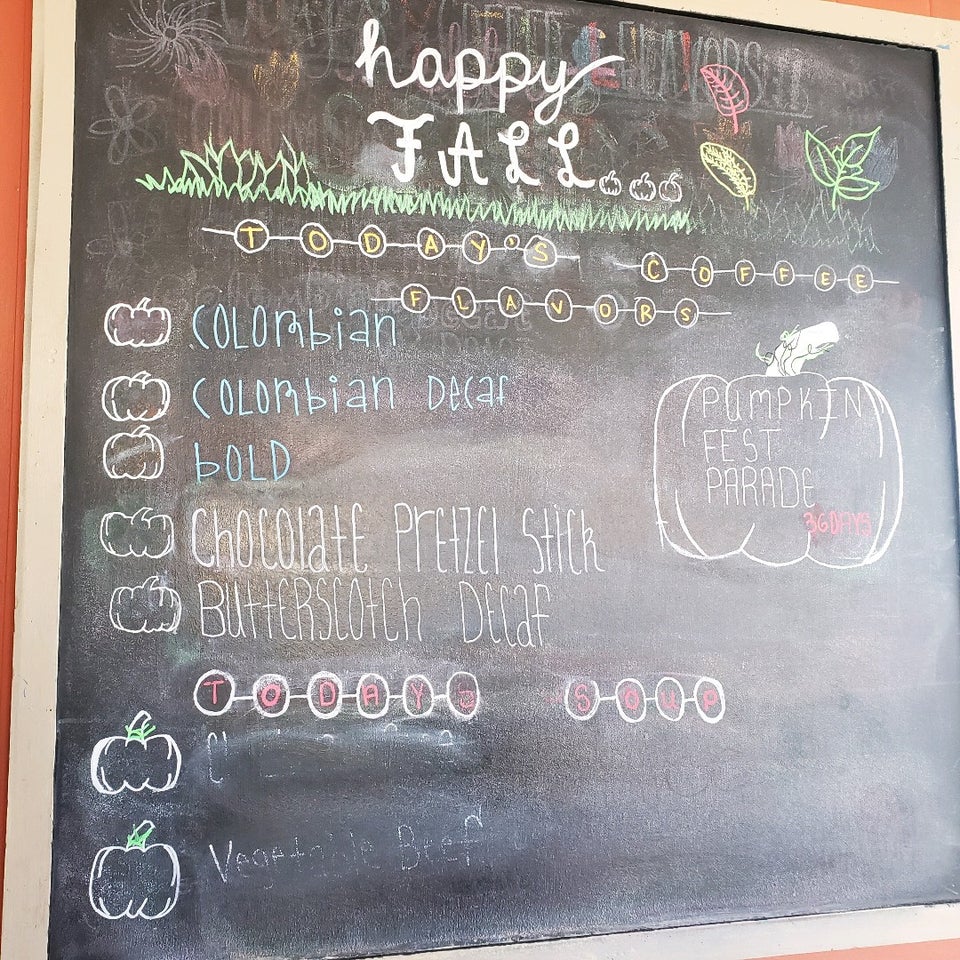 happy
FALL...
TODAY'S COFFEE
FLAVORS
COLOMbian
COLOMbian Decaf
bOLD
Chocolate Pretzel Stick
Butterscotch Decaf
PUMPKIN
FEST
PARADE
36 DAYS
TODAYS SOUP
Vegetable Beef